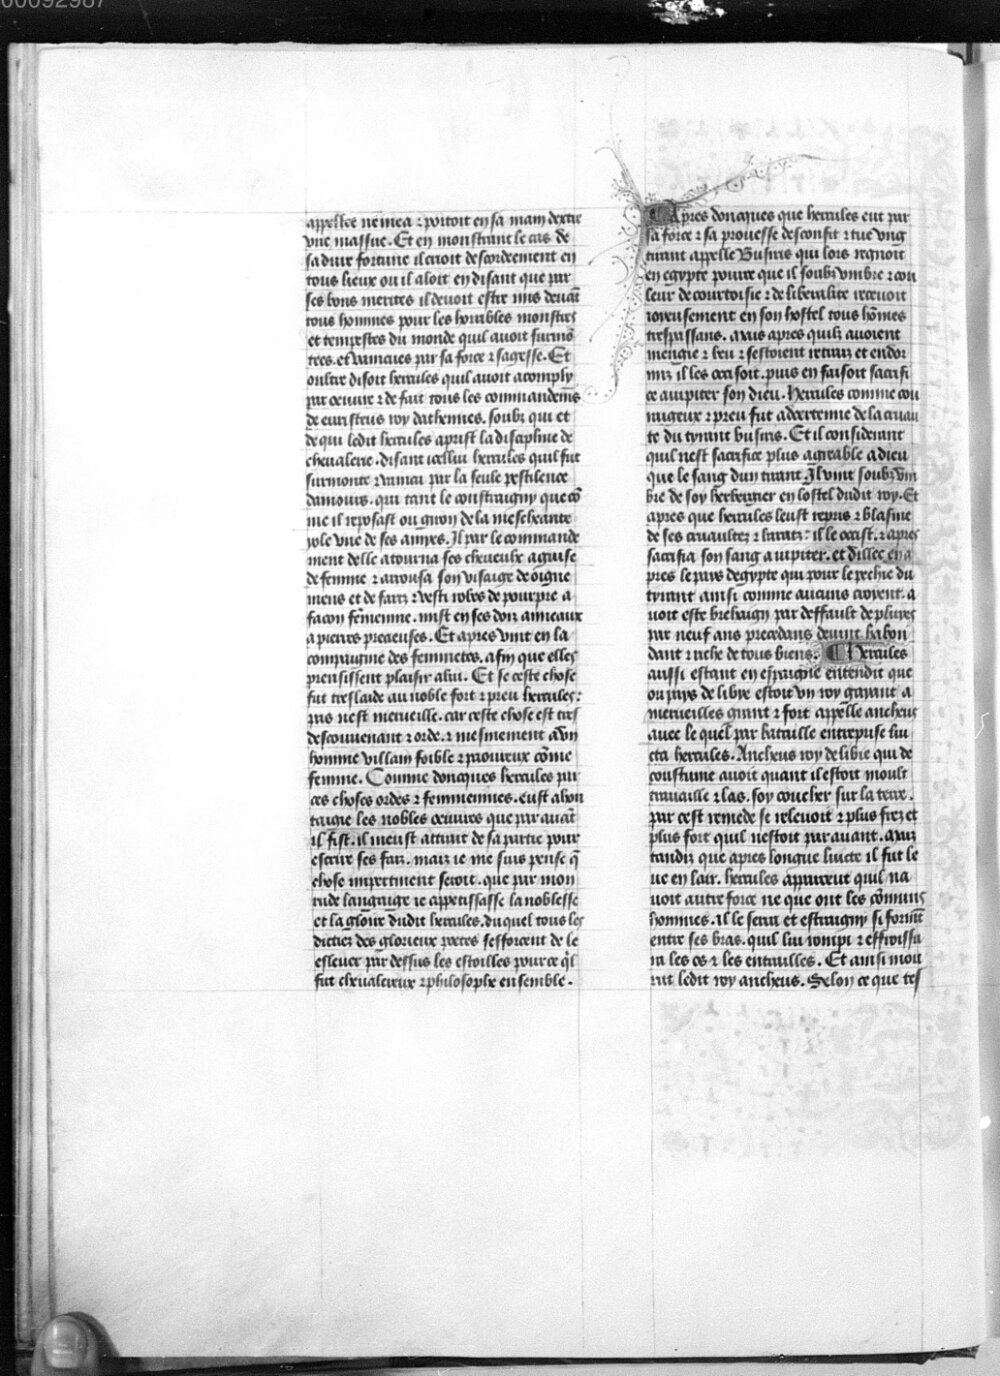 00092987
appellee nemea ⁊ portoit en sa main dextre
vne massue. Et en monstrant le cas de
sa dure fortune il crioit descordeement en
tous lieux ou il aloit en disant que par
ses bons merites il deuoit estre mis deuāt
tous hommes pour les horribles monstres
et tempestes du monde quil auoit surmō
tees. et vaincues par sa force ⁊ sagesse. Et
oultre disoit hercules quil auoit acomply
par oeuure ⁊ de fait tous les commandemēs
de euristeus roy dathennes. soubz qui et
de qui ledit hercules aprist la discipline de
cheualerie. disant icellui hercules quil fut
surmonte ⁊ vaincu par la seule pestilence
damours. qui tant le constraigny que cō
me il reposast ou giron de la meschante
iole vne de ses amyes. Il par le commande
ment delle atourna ses cheueulx a guise
de femme ⁊ arrousa son visaige de oigne
mens et de fartz ⁊ vesti robes de pourpre a
facon femenine. mist en ses dois anneaux
a pierres precieuses. Et apres vint en la
compaignie des femmetes. afin que elles
prensissent plaisir a lui. Et se ceste chose
fut treslaide au noble fort ⁊ preu hercules:
pas nest merueille. car ceste chose est tres
descouuenant ⁊ orde. ⁊ mesmement a vn
homme villain foible ⁊ paoureux cōme
femme. Comme doncques hercules par
ces choses ordes ⁊ femmenines. eust ahon
taigie les nobles oeuures que par auāt
il fist. il meust attrait de sa partie pour
escrire ses fais. maiz ie me suis pense q̄
chose impertinent seroit. que par mon
rude langaige ie appetissasse la noblesse
et la gloire dudit hercules. duquel tous les
dictiez des glorieux poetes sefforcent de le
esleuer par dessus les estoilles pour ce q̄l
fut cheualereux ⁊ philosophe ensemble.
Apres doncques que hercules eut par
sa force ⁊ sa prouesse desconfit ⁊ tue vng
tirant appelle Busiris qui lors regnoit
en egypte pource que il soubz vmbre ⁊ cou
leur de courtoisie ⁊ de liberalite receuoit
ioyeusement en son hostel tous hōmes
trespassans. maiz apres quilz auoient
mengie ⁊ beu ⁊ sestoient retraiz et endor
miz il les occisoit. puis en faisoit sacrifi
ce a iupiter son dieu. Hercules comme cou
raigeux ⁊ preu fut adcertene de la cruau
te du tyrant busiris. Et il considerant
quil nest sacrifice plus agreable a dieu
que le sang dun tirant. Il vint soubz vm
bre de soy herbergier en lostel dudit roy. Et
apres que hercules leust repris ⁊ blasme
de ses cruaultez ⁊ baratz: il le occist. ⁊ apres
sacrifia son sang a iupiter. et dillec en a
pres le pays degypte qui pour le pechie du
tyrant ainsi comme aucuns croyent. a
uoit este brehaign par deffault de pluyes
par neuf ans precedans deuint habon
dant ⁊ riche de tous biens. Hercules
aussi estant en espaigne entendit que
ou pays de libye estoit vn roy gayant a
merueilles grant ⁊ fort appelle antheus
auec le quel par bataille entreprise luy
cta hercules. Antheus roy de libie qui de
coustume auoit quant il estoit moult
trauaille ⁊ las. soy coucher sur la terre.
par cest remede se releuoit ⁊ plus frez et
plus fort quil nestoit par auant. maiz
tandiz que apres longue lucte il fut le
ue en lair. hercules apperceut quil na
uoit autre force ne que ont les cōmuns
hommes. il le serra et estraigny si formēt
entre ses bras. quil lui rompi ⁊ effroissa
les os ⁊ les entrailles. Et ainsi mou
rut ledit roy antheus. Selon ce que tes